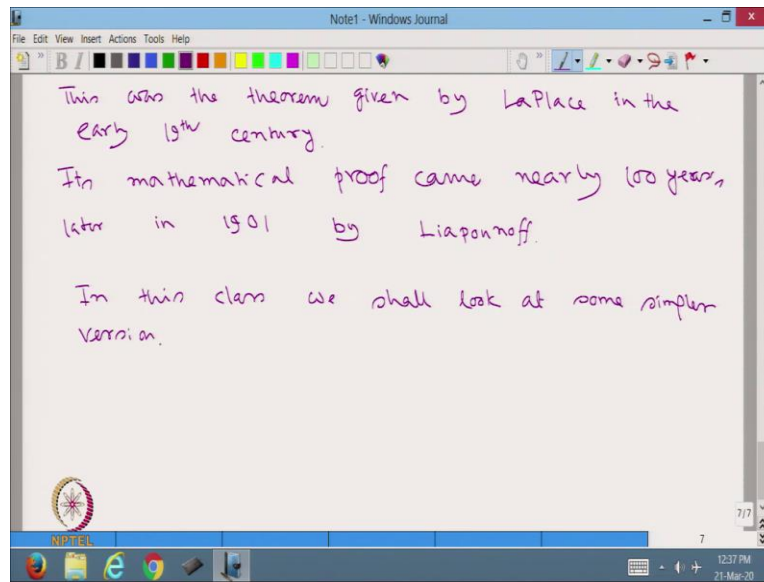 Note1 - Windows Journal
File Edit View Insert Actions Tools Help
This was the theorem given by LaPlace in the
early 19th century.
Its mathematical proof came nearly 100 years
later in 1901 by Liapounoff.
In this class we shall look at some simpler
version.
NPTEL
7/7
7
12:37 PM
21-Mar-20